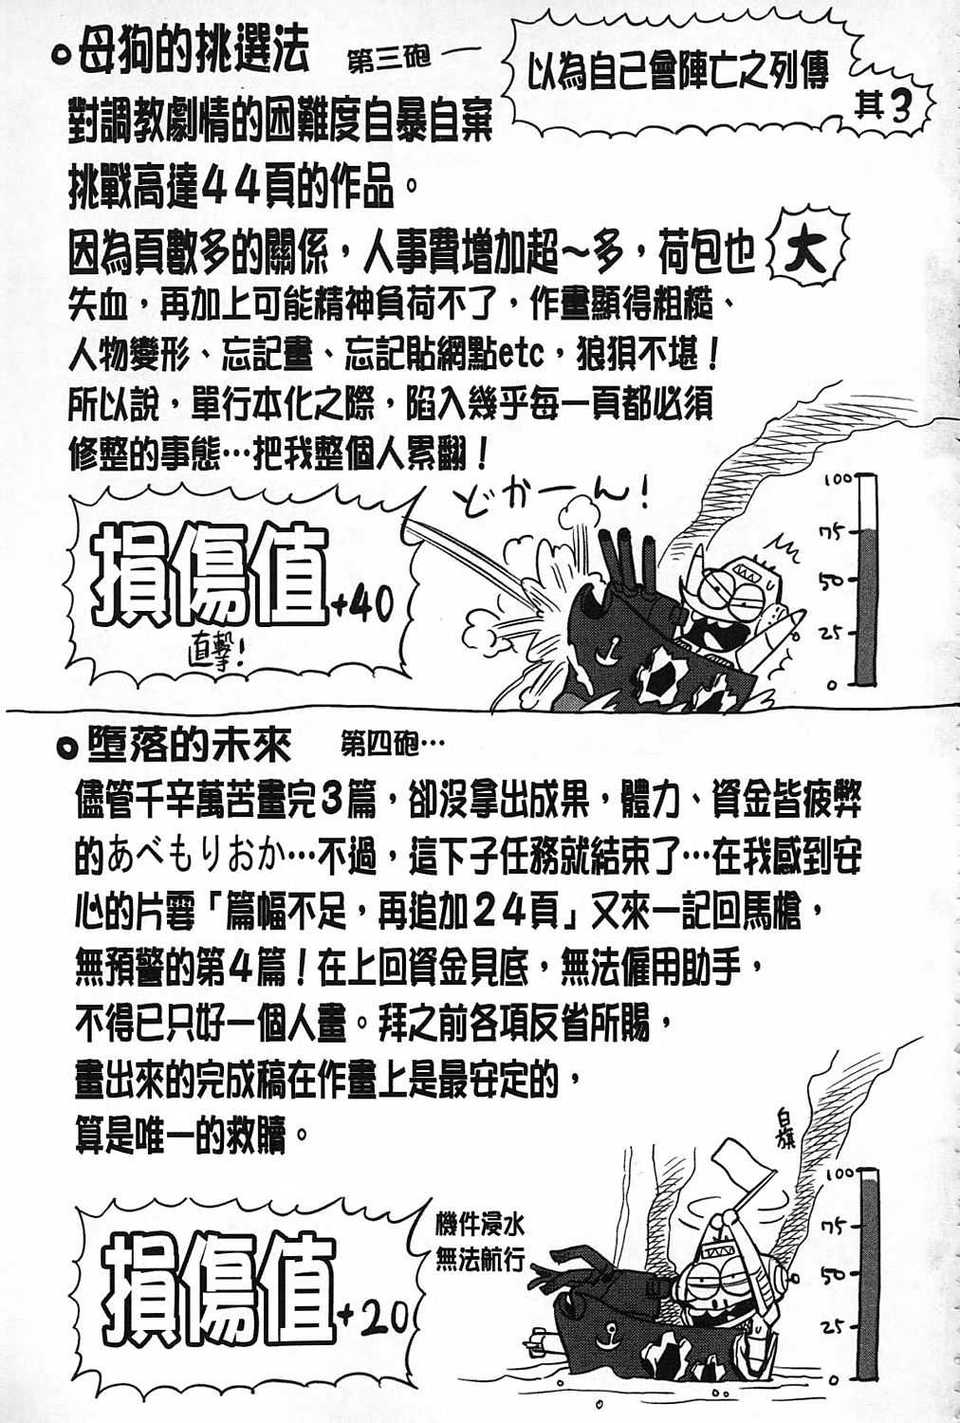 以為自己會陣亡之列傳
其3
母狗的挑選法 第三砲—
對調教劇情的困難度自暴自棄
挑戰高達44頁的作品。
因為頁數多的關係，人事費增加超～多，荷包也大
失血，再加上可能精神負荷不了，作畫顯得粗糙、
人物變形、忘記畫、忘記貼網點etc，狼狽不堪！
所以說，單行本化之際，陷入幾乎每一頁都必須
修整的事態…把我整個人累翻！
どかーん！
損傷值+40
直擊！
100
75
50
25
0
墮落的未來 第四砲…
儘管千辛萬苦畫完3篇，卻沒拿出成果，體力、資金皆疲弊
的あべもりおか…不過，這下子任務就結束了…在我感到安
心的片雲「篇幅不足，再追加24頁」又來一記回馬槍，
無預警的第4篇！在上回資金見底，無法僱用助手，
不得已只好一個人畫。拜之前各項反省所賜，
畫出來的完成稿在作畫上是最安定的，
算是唯一的救贖。
白旗
損傷值+20
機件浸水
無法航行
100
75
50
25
0